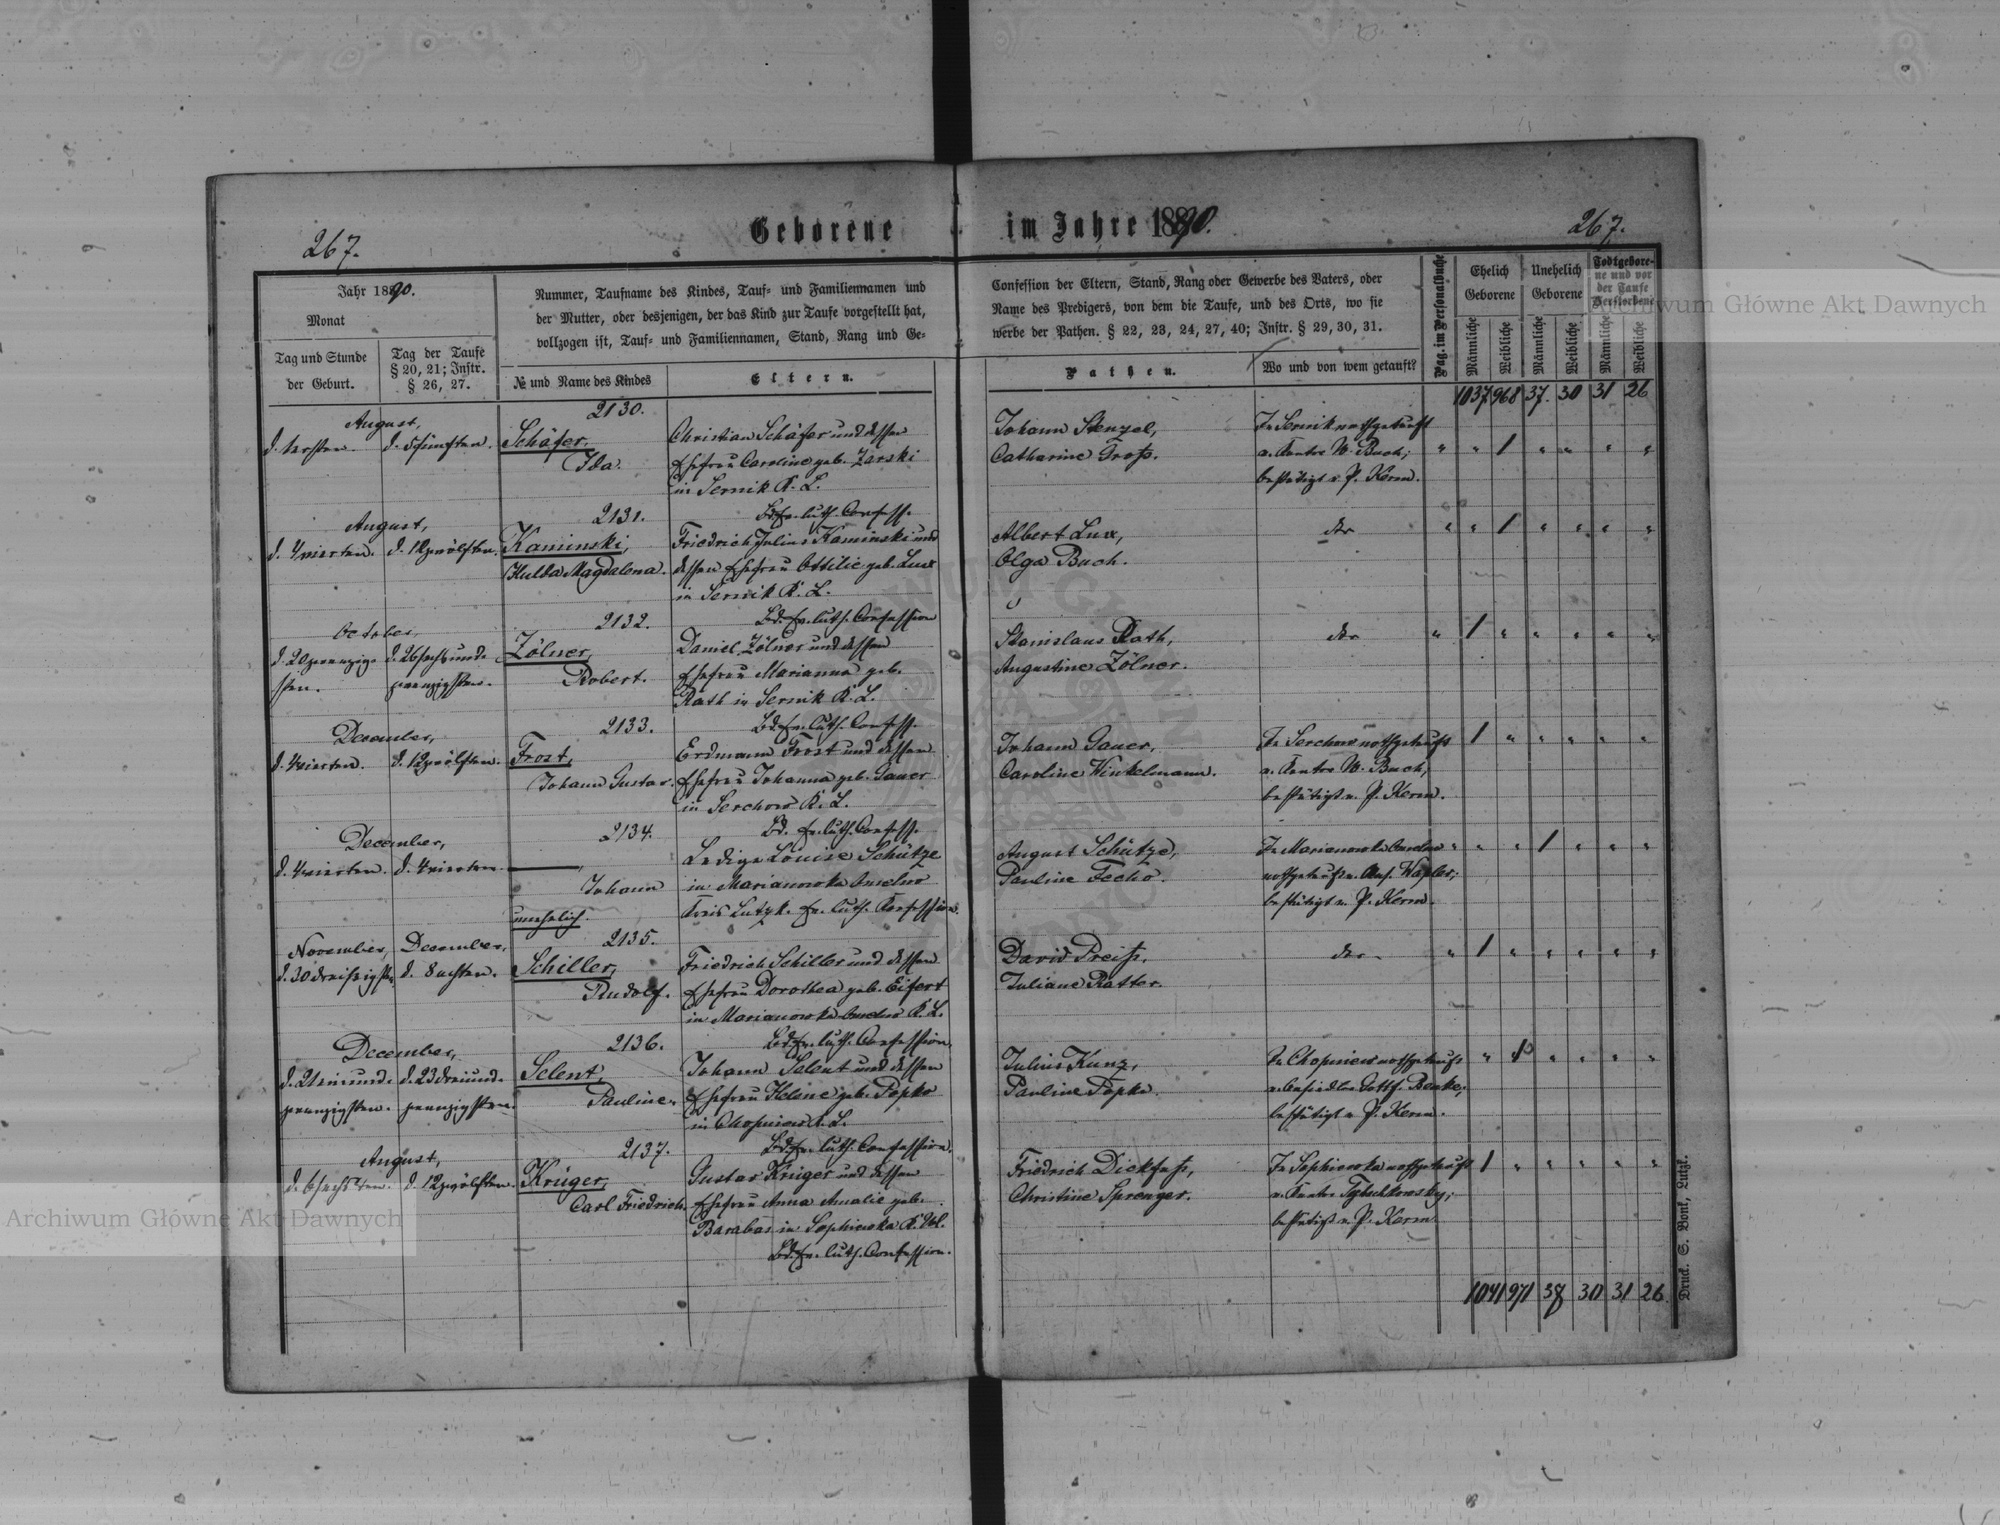 Geborene im Jahre 1890.
267.
267.
Jahr 1890.
Monat
Tag und Stunde
der Geburt.
Tag der Taufe
§ 20, 21; Instr.
§ 26, 27.
Nummer, Taufname des Kindes, Tauf= und Familiennamen und
der Mutter, oder desjenigen, der das Kind zur Taufe vorgestellt hat,
vollzogen ist, Tauf= und Familiennamen, Stand, Rang und Ge=
№ und Name des Kindes
Eltern.
Confession der Eltern, Stand, Rang oder Gewerbe des Vaters, oder
Name des Predigers, von dem die Taufe, und des Orts, wo sie
werbe der Pathen. § 22, 23, 24, 27, 40; Instr. § 29, 30, 31.
Pathen.
Wo und von wem getauft?
Pag. im Personalbuche
Ehelich
Geborene
Unehelich
Geborene
Todtgebore=
ne und vor
der Taufe
Verstorbene
Männliche
Weibliche
Männliche
Weibliche
Männliche
Weibliche
1037 968 37. 30 31 26
August,
d. 1 ersten. d. 5 fünften.
2130.
Schäfer,
Ida.
Christian Schäfer und dessen
Ehefrau Caroline geb. Zarski
in Sernik K. L.
Bd. ev. luth. Confess.
Johann Stenzel,
Catharine Groß.
In Sernik nothgetauft
v. Kantor W. Buch;
bestätigt v. P. Kerm.
August,
d. 4 vierten. d. 12 zwölften.
2131.
Kaminski,
Hulda Magdalena.
Friedrich Julius Kaminski und
dessen Ehefrau Ottilie geb. Lux
in Sernik K. L.
Bd. ev. luth. Confession
Albert Lux,
Olga Buch.
dto
October,
d. 20 zwanzig= d. 26 sechsund=
sten. zwanzigsten.
2132.
Zölner,
Robert.
Daniel Zölner und dessen
Ehefrau Marianna geb.
Rath in Sernik K. L.
Bd. ev. luth. Confess.
Stanislaus Rath,
Augustine Zölner.
dto
December,
d. 4 vierten. d. 12 zwölften.
2133.
Frost,
Johann Gustav.
Erdmann Frost und dessen
Ehefrau Johanna geb. Gauer
in Serchow K. L.
Bd. ev. luth. Confess.
Johann Gauer,
Caroline Winkelmann.
In Serchow nothgetauft
v. Kantor W. Buch;
bestätigt v. P. Kerm.
December,
d. 4 vierten. d. 4 vierten.
2134.
Johann
unehelich.
Ledige Louise Schütze
in Marianowka
Kreis Lutzk. ev. luth. Confession.
August Schütze,
Pauline Fecho.
In Marianowka
nothgetauft v.
bestätigt v. P. Kerm.
November, December,
d. 30 dreißigsten d. 8 achten.
2135.
Schiller,
Rudolf.
Friedrich Schiller und dessen
Ehefrau Dorothea geb. Eifert
in Marianowka K. L.
Bd. ev. luth. Confession.
David Preiß,
Juliane Ratter.
dto
December,
d. 21 einund= d. 23 dreiund=
zwanzigsten. zwanzigsten.
2136.
Selent,
Pauline.
Johann Selent und dessen
Ehefrau Helene geb. Popko
in Chopniew K. L.
Bd. ev. luth. Confession.
Julius Kunz,
Pauline Popko.
In Chopniew nothgetauft
v. Ansiedler Gottf. Benke;
bestätigt v. P. Kerm.
August,
d. 6 sechsten. d. 12 zwölften.
2137.
Krüger,
Carl Friedrich.
Gustav Krüger und dessen
Ehefrau Anna Amalie geb.
Barabas in Sophiewka K. Wl.
Bd. ev. luth. Confession.
Friedrich Dickfuß,
Christine Sprenger.
In Sophiewka nothgetauft
v. Kantor
bestätigt v. P. Kerm.
1041 971 38 30 31 26.
Druck. S. Bonk, Lutzk.
Archiwum Główne Akt Dawnych
Archiwum Główne Akt Dawnych